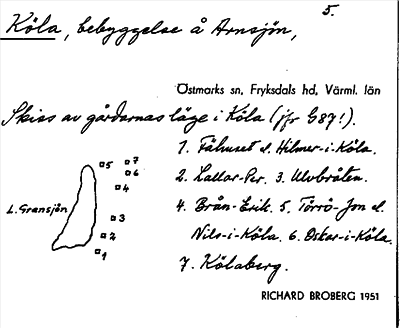 5.
Köla, bebyggelse å Arnsjön,
Östmarks sn, Fryksdals hd, Värml. län
Skiss av gårdarnas läge i Köla (jfr G87!).
1. Fähuset el. Hilmer-i-Köla.
2. Lallar-Per. 3. Ulvbråten.
4. Brån-Erik. 5. Törrö-Jon el.
Nils-i-Köla. 6. Oskar-i-Köla.
7. Kölaberg.
L. Gransjön
5 7
6
4
3
2
1
RICHARD BROBERG 1951